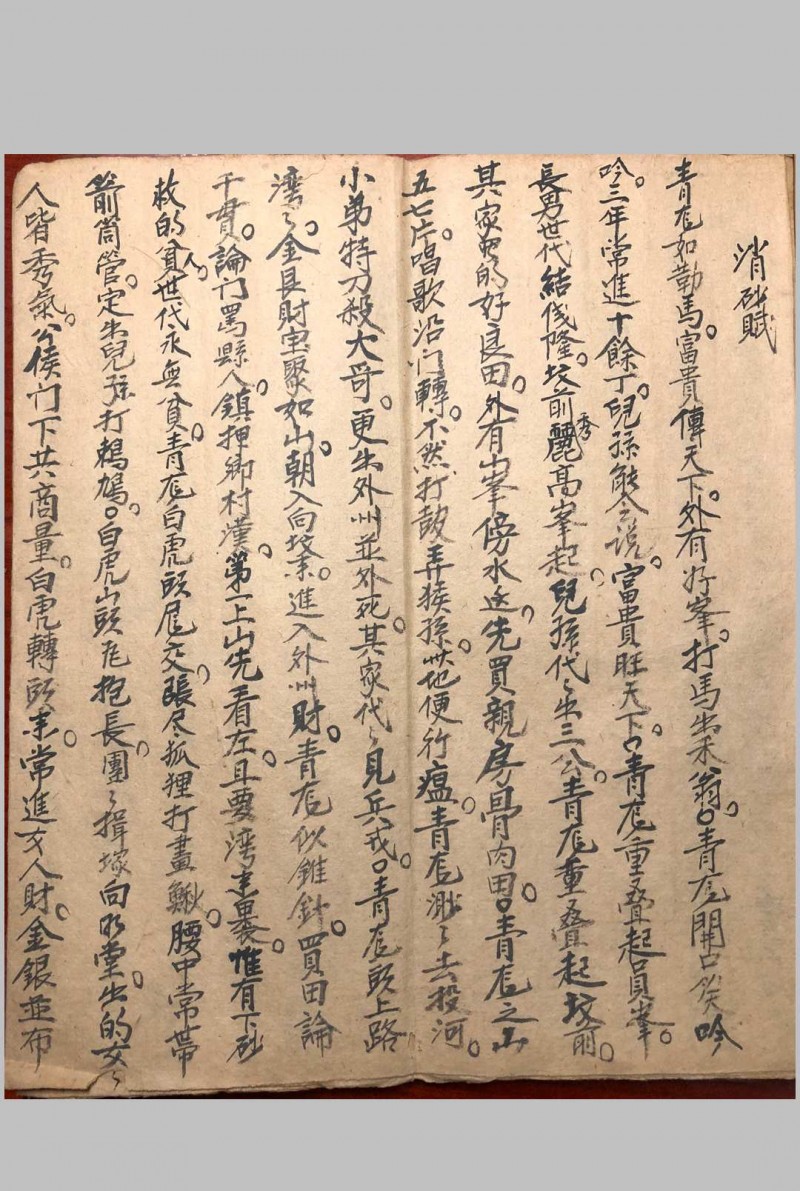 消砂賦
青龙如勒馬。富貴傳天下。外有好峯。打馬出朱翁。青龙開口笑吟
吟。三年常進十餘丁。兒孫能会说。富貴旺天下。青龙重叠起員峯。
長男世代結伐隆。坟前麗秀高峯起。兒孫代〻出三公。青龙重叠起坟前。
其家男的好良田。外有山峯傍水边。先買親房骨肉田。青龙之山
五七片。唱歌沿门轉。不然打鼓弄猴孫。世世便行瘟。青龙渺〻去投河。
小弟特刀殺大哥。更出外州並外死。其家代〻見兵戎。青龙頭上路
湾〻。金艮財宝聚如山。朝入向坟来。進入外州財。青龙似錐針。買田論
千貫。論门罵縣人。鎮押鄉村漢。第一上山先看左。且要湾来裹。惟有下砂
救的貧人。世代永無貧。青龙白虎頭尾交。張尽狐狸打畫鰍。腰中常帶
箭筒管。定出兒孫打鵪鳩。白虎山頭左抱長。團〻揖塚向明堂。出的女〻
人皆秀氣。公侯门下共商量。白虎轉頭来。常進女人財。金銀並布